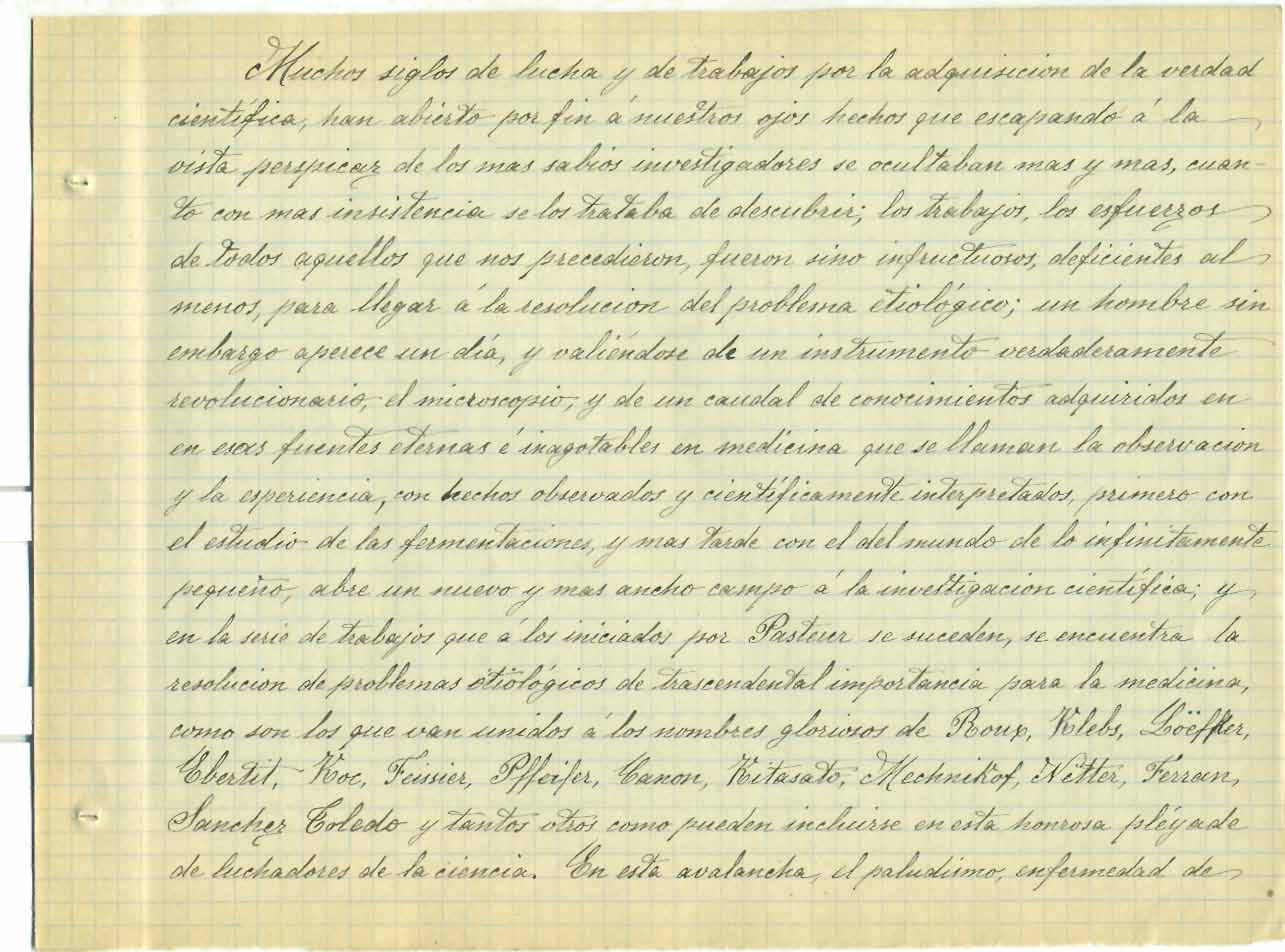 Muchos siglos de lucha y de trabajos por la adquisicion de la verdad
científica, han abierto por fin á nuestros ojos hechos que escapando á la
vista perspicaz de los mas sabios investigadores se ocultaban mas y mas, cuan-
to con mas insistencia se los trataba de descubrir; los trabajos, los esfuerzos
de todos aquellos que nos precedieron, fueron sino infructuosos, deficientes al
menos, para llegar á la resolucion del problema etiológico; un hombre sin
embargo aperece un día, y valiéndose de un instrumento verdaderamente
revolucionario, el microscopio, y de un caudal de conocimientos adquiridos en
en esas fuentes eternas é inagotables en medicina que se llaman la observacion
y la esperiencia, con hechos observados y científicamente interpretados, primero con
el estudio de las fermentaciones, y mas tarde con el del mundo de lo infinitamente
pequeño, abre un nuevo y mas ancho campo á la investigacion científica; y
en la serie de trabajos que á los iniciados por Pasteur se suceden, se encuentra la
resolucion de problemas etiológicos de trascendental importancia para la medicina,
como son los que van unidos á los nombres gloriosos de Roux, Klebs, Löeffler,
Ebertit, Koc, Feissier, Pffeifer, Canon, Kitasato, Mechnikof, Netter, Ferran,
Sanchez Toledo y tantos otros como pueden incluirse en esta honrosa pléyade
de luchadores de la ciencia. En esta avalancha, el paludismo, enfermedad de